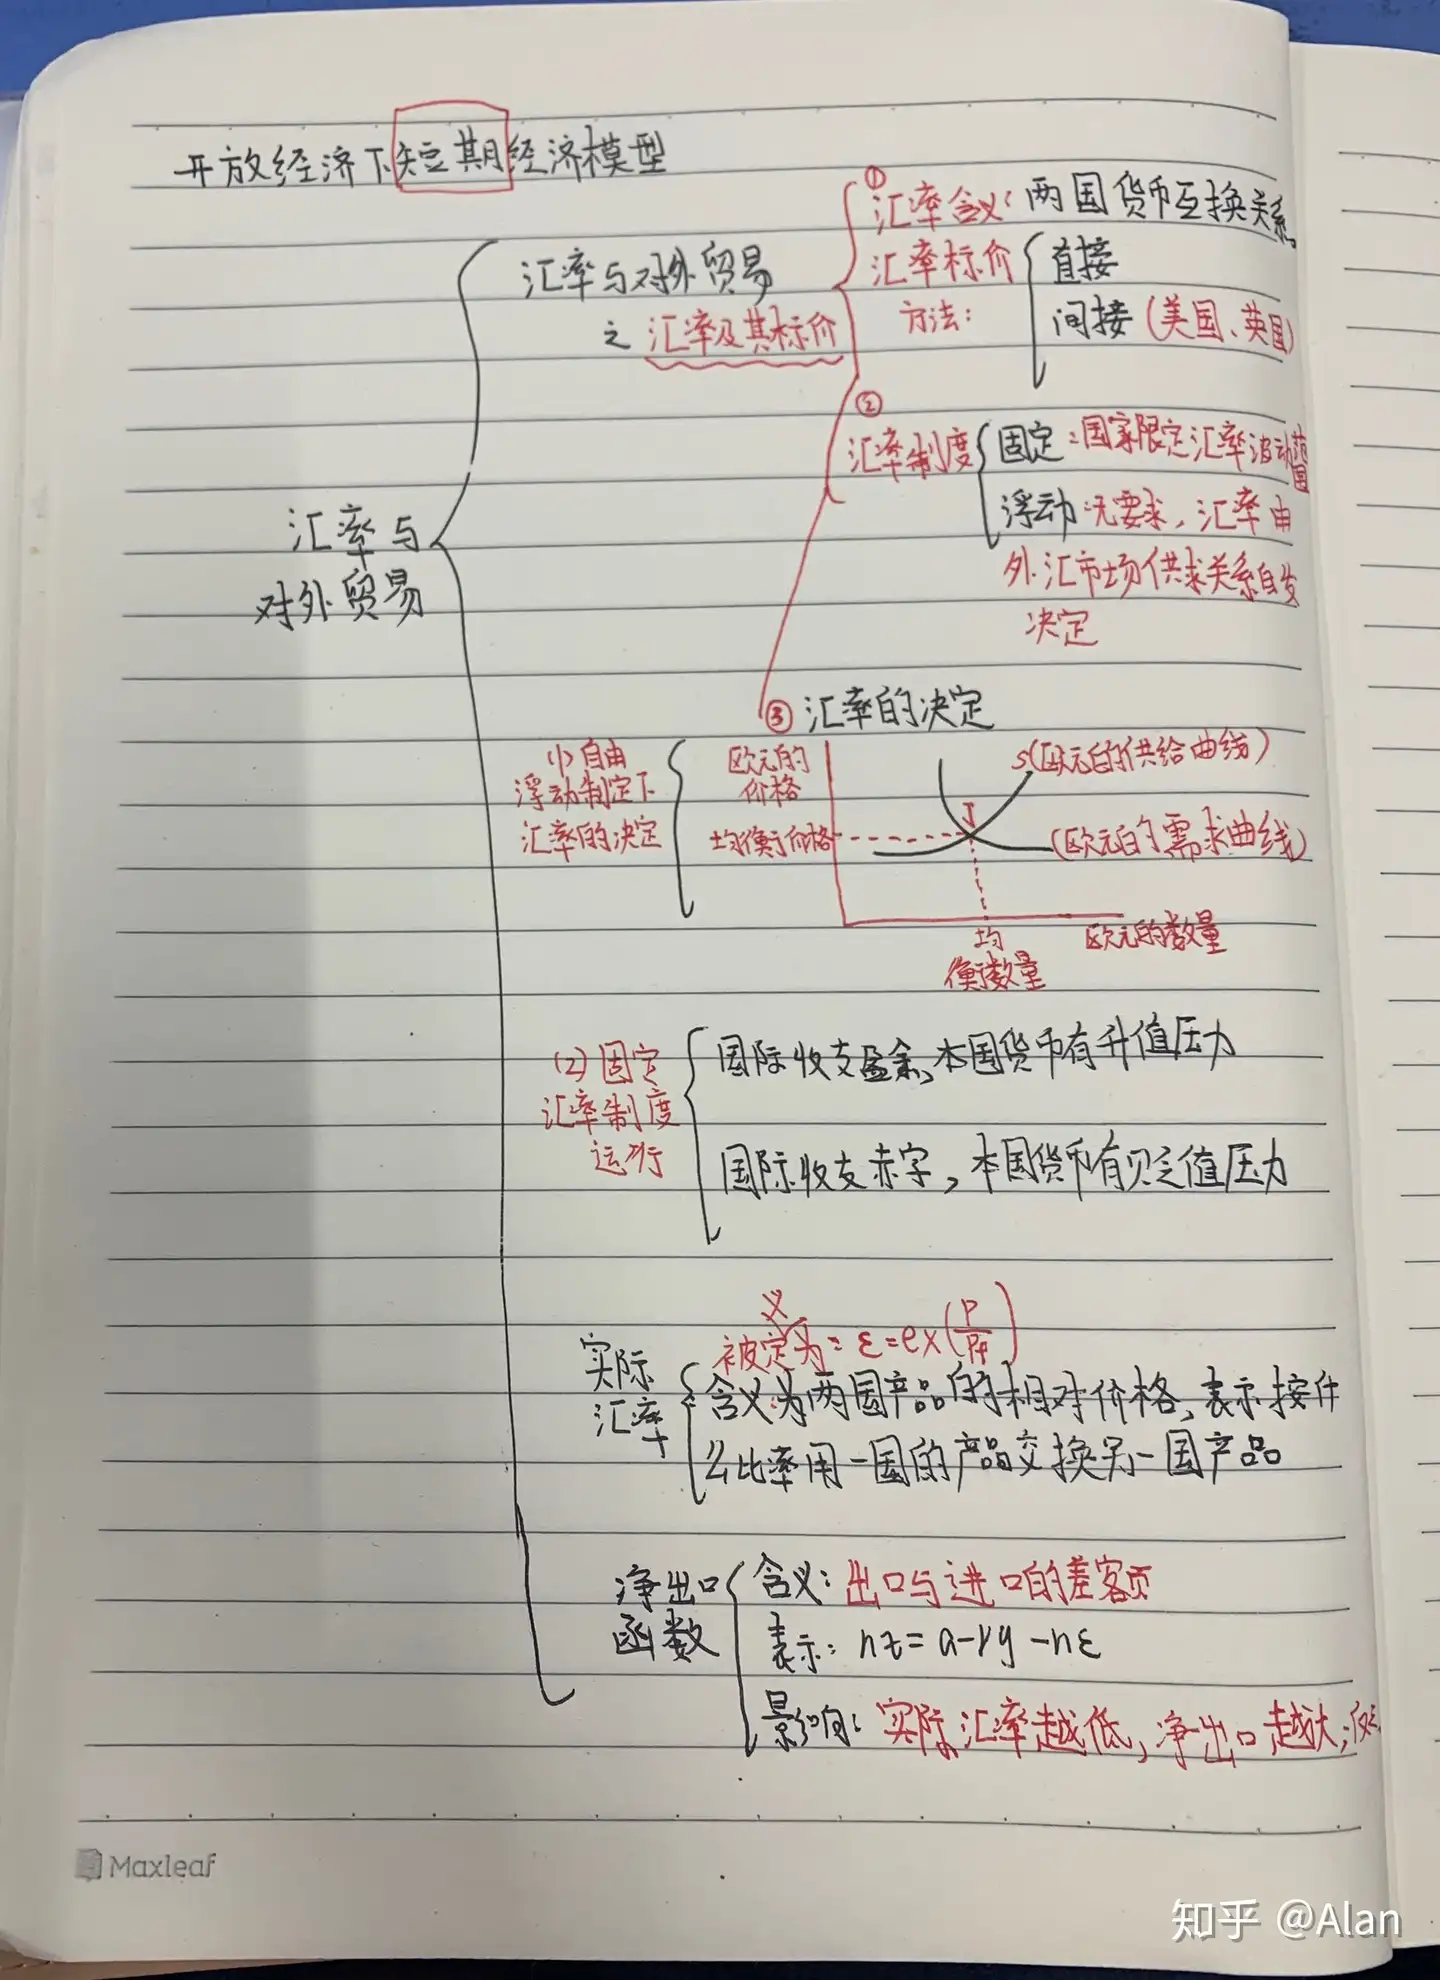 开放经济下短期经济模型
汇率与
对外贸易
汇率与对外贸易
之 汇率及其标价
①
汇率含义: 两国货币互换关系
汇率标价
方法:
直接
间接 (美国、英国)
②
汇率制度
固定:国家限定汇率波动范围
浮动 无要求, 汇率由
外汇市场供求关系自发
决定
③ 汇率的决定
(1) 自由
浮动制定下
汇率的决定
欧元的
价格
均衡价格
S(欧元的供给曲线)
(欧元的需求曲线)
均
衡数量
欧元的数量
(2) 固定
汇率制度
运行
国际收支盈余,本国货币有升值压力
国际收支赤字, 本国货币有贬值压力
实际
汇率
义
被定为: ε=e×(P/Pf)
含义:为两国产品的相对价格,表示按什
么比率用一国的产品交换另一国产品
净出口
函数
含义: 出口与进口的差额
表示: nz=a-ry-nε
影响: 实际汇率越低, 净出口越大;反之
Maxleaf
知乎 @Alan